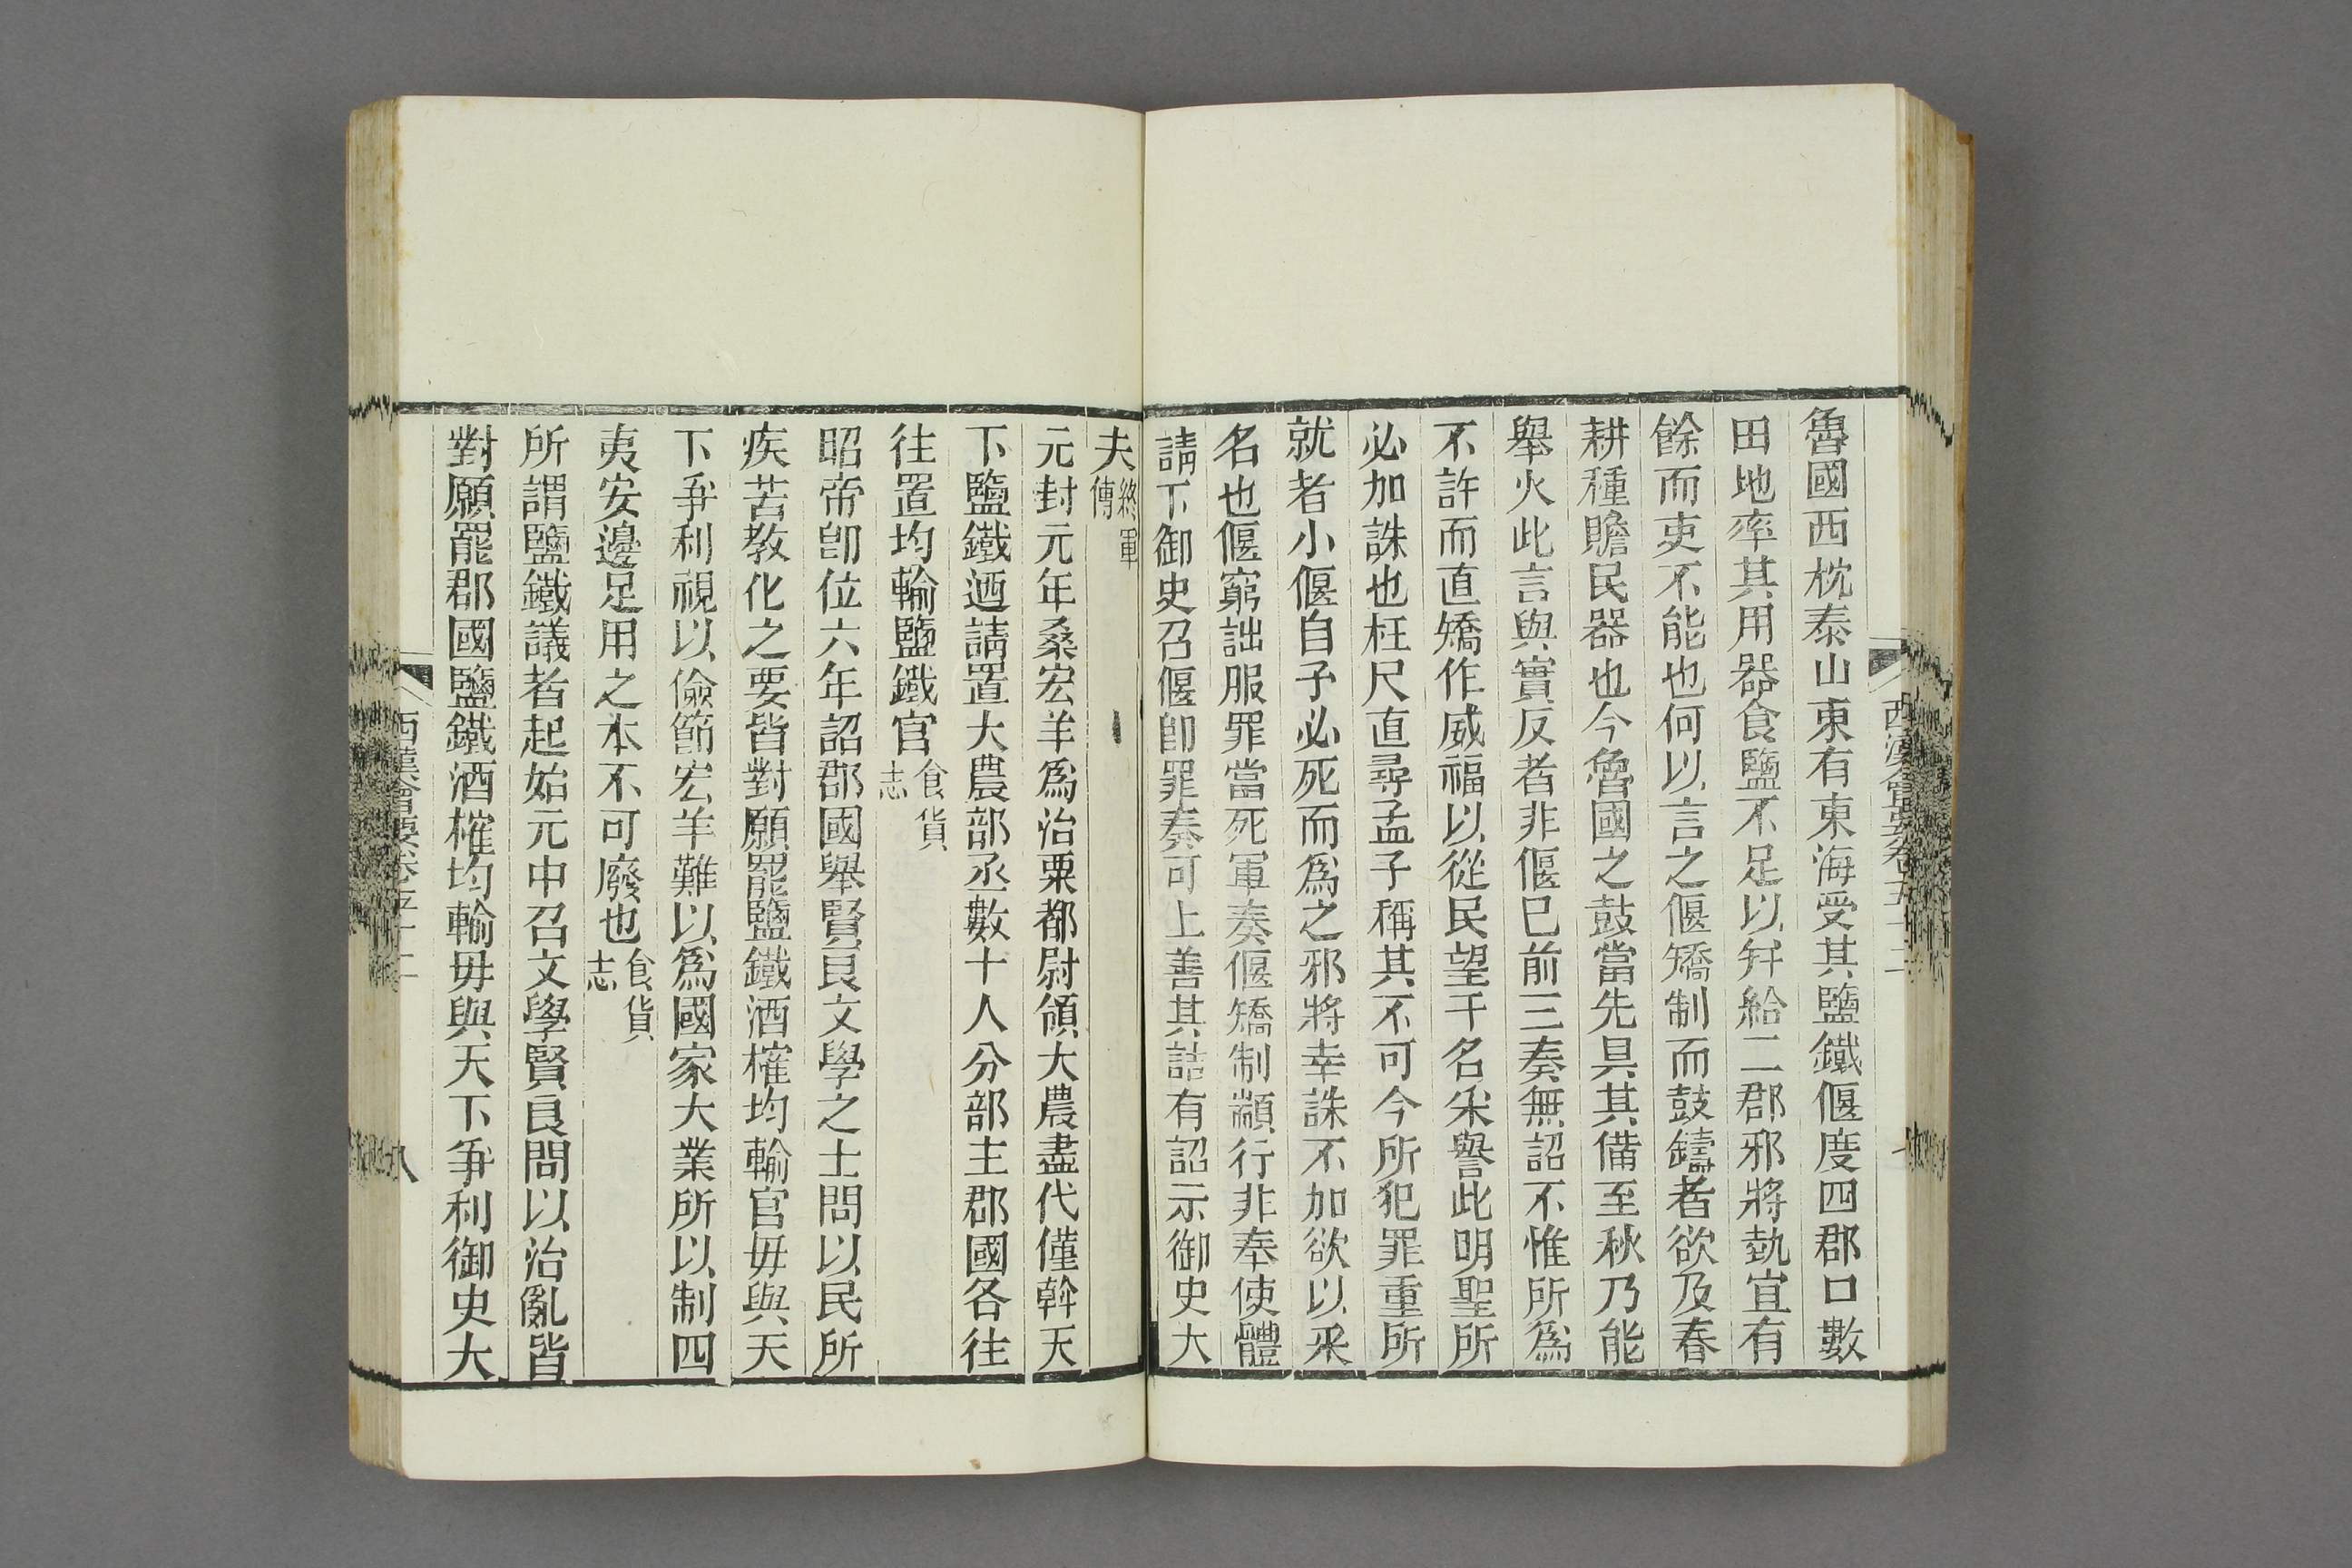 魯國西枕泰山東有東海受其鹽鐵偃度四郡口數
田地率其用器食鹽不足以并給二郡邪將埶宜有
餘而吏不能也何以言之偃矯制而鼓鑄者欲及春
耕種贍民器也今魯國之鼓當先具其備至秋乃能
舉火此言與實反者非偃已前三奏無詔不惟所爲
不許而直矯作威福以從民望干名釆譽此明聖所
必加誅也枉尺直尋孟子稱其不可今所犯罪重所
就者小偃自予必死而爲之邪將幸誅不加欲以采
名也偃窮詘服罪當死軍奏偃矯制顓行非奉使體
請下御史召偃卽罪奏可上善其詰有詔示御史大
夫終軍傳
元封元年桑宏羊爲治粟都尉領大農盡代僅斡天
下鹽鐵迺請置大農部丞數十人分部主郡國各往
往置均輸鹽鐵官食貨志
昭帝卽位六年詔郡國舉賢良文學之士問以民所
疾苦敎化之要皆對願罷鹽鐵酒榷均輸官毋與天
下爭利視以儉節宏羊難以爲國家大業所以制四
夷安邊足用之本不可廢也食貨志
所謂鹽鐵議者起始元中召文學賢良問以治亂皆
對願罷郡國鹽鐵酒榷均輸毋與天下爭利御史大
西漢會要卷五十二
八